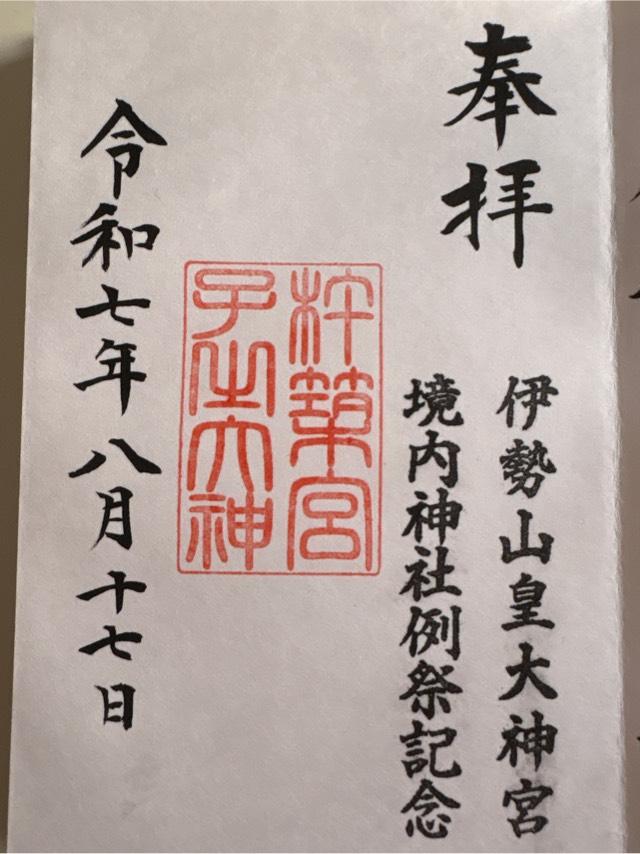 奉拝
伊勢山皇大神宮
境内神社例祭記念
杵築宮
子之大神
令和七年八月十七日